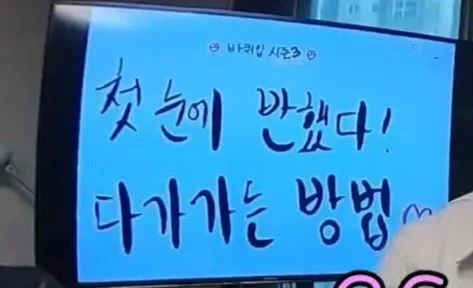 바퀴입 시즌3
첫 눈에 반했다!
다가가는 방법